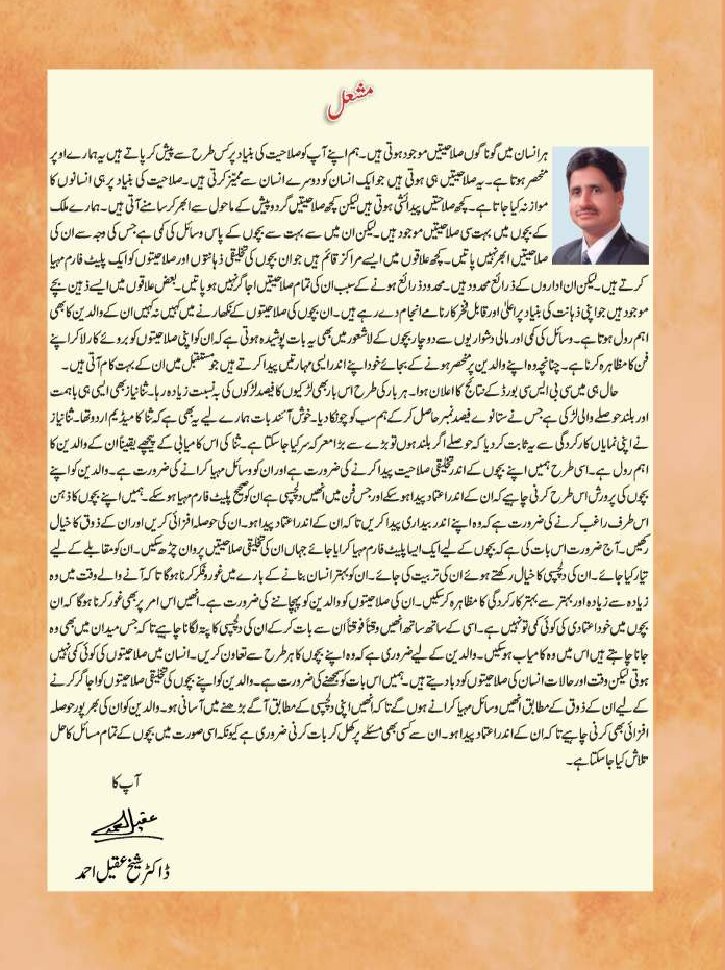 مشعل
ہر انسان میں گوناگوں صلاحیتیں موجود ہوتی ہیں۔ ہم اپنے آپ کو صلاحیت کی بنیاد پر کس طرح سے پیش کر پاتے ہیں یہ ہمارے اوپر
منحصر ہوتا ہے۔ یہ صلاحیتیں ہی ہوتی ہیں جو ایک انسان کو دوسرے انسان سے ممیّز کرتی ہیں۔ صلاحیت کی بنیاد پر ہی انسانوں کا
موازنہ کیا جاتا ہے۔ کچھ صلاحیتیں پیدائشی ہوتی ہیں لیکن کچھ صلاحیتیں گرد و پیش کے ماحول سے ابھر کر سامنے آتی ہیں۔ ہمارے ملک
کے بچوں میں بہت سی صلاحیتیں موجود ہیں۔ لیکن ان میں سے بہت سے بچوں کے پاس وسائل کی کمی ہے جس کی وجہ سے ان کی
صلاحیتیں ابھر نہیں پاتیں۔ کچھ علاقوں میں ایسے مراکز قائم ہیں جو ان بچوں کی تخلیقی ذہانتوں اور صلاحیتوں کو ایک پلیٹ فارم مہیا
کرتے ہیں۔ لیکن ان اداروں کے ذرائع محدود ہیں۔ محدود ذرائع ہونے کے سبب ان کی تمام صلاحیتیں اجاگر نہیں ہو پاتیں۔ بعض علاقوں میں ایسے ذہین بچے
موجود ہیں جو اپنی ذہانت کی بنیاد پر اعلیٰ اور قابل فخر کارنامے انجام دے رہے ہیں۔ ان بچوں کی صلاحیتوں کے نکھارنے میں کہیں نہ کہیں ان کے والدین کا بھی
اہم رول ہوتا ہے۔ وسائل کی کمی اور مالی دشواریوں سے دوچار بچوں کے لاشعور میں بھی یہ بات پوشیدہ ہوتی ہے کہ ان کو اپنی صلاحیتوں کو بروئے کار لا کر اپنے
فن کا مظاہرہ کرنا ہے۔ چنانچہ وہ اپنے والدین پر منحصر ہونے کے بجائے خود اپنے اندر ایسی مہارتیں پیدا کرتے ہیں جو مستقبل میں ان کے بہت کام آتی ہیں۔
حال ہی میں سی بی ایس سی بورڈ کے نتائج کا اعلان ہوا۔ ہر بار کی طرح اس بار بھی لڑکیوں کا فیصد لڑکوں کی بہ نسبت زیادہ رہا۔ ثنا نیاز بھی ایسی ہی باہمت
اور بلند حوصلے والی لڑکی ہے جس نے ستانوے فیصد نمبر حاصل کر کے ہم سب کو چونکا دیا۔ خوش آئند بات ہمارے لیے یہ بھی ہے کہ ثنا کا میڈیم اردو تھا۔ ثنا نیاز
نے اپنی نمایاں کارکردگی سے یہ ثابت کر دیا کہ حوصلے اگر بلند ہوں تو بڑے سے بڑا معرکہ سر کیا جا سکتا ہے۔ ثنا کی اس کامیابی کے پیچھے یقیناً ان کے والدین کا
اہم رول ہے۔ اسی طرح ہمیں اپنے بچوں کے اندر تخلیقی صلاحیت پیدا کرنے کی ضرورت ہے اور ان کو وسائل مہیا کرانے کی ضرورت ہے۔ والدین کو اپنے
بچوں کی پرورش اس طرح کرنی چاہیے کہ ان کے اندر اعتماد پیدا ہو سکے اور جس فن میں انھیں دلچسپی ہے ان کو صحیح پلیٹ فارم مہیا ہو سکے۔ ہمیں اپنے بچوں کا ذہن
اس طرف راغب کرنے کی ضرورت ہے کہ وہ اپنے اندر بیداری پیدا کریں تاکہ ان کے اندر اعتماد پیدا ہو۔ ان کی حوصلہ افزائی کریں اور ان کے ذوق کا خیال
رکھیں۔ آج ضرورت اس بات کی ہے کہ بچوں کے لیے ایک ایسا پلیٹ فارم مہیا کرایا جائے جہاں ان کی تخلیقی صلاحیتیں پروان چڑھ سکیں۔ ان کو مقابلے کے لیے
تیار کیا جائے۔ ان کی دلچسپی کا خیال رکھتے ہوئے ان کی تربیت کی جائے۔ ان کو بہتر انسان بنانے کے بارے میں غور و فکر کرنا ہوگا تاکہ آنے والے وقت میں وہ
زیادہ سے زیادہ اور بہتر سے بہتر کارکردگی کا مظاہرہ کر سکیں۔ ان کی صلاحیتوں کو والدین کو پہچاننے کی ضرورت ہے۔ انھیں اس امر پر بھی غور کرنا ہوگا کہ ان
بچوں میں خود اعتمادی کی کوئی کمی تو نہیں ہے۔ اسی کے ساتھ ساتھ انھیں وقتاً فوقتاً ان سے بات کر کے ان کی دلچسپی کا پتہ لگانا چاہیے تاکہ جس میدان میں بھی وہ
جانا چاہتے ہیں اس میں وہ کامیاب ہو سکیں۔ والدین کے لیے ضروری ہے کہ وہ اپنے بچوں کا ہر طرح سے تعاون کریں۔ انسان میں صلاحیتوں کی کوئی کمی نہیں
ہوتی لیکن وقت اور حالات انسان کی صلاحیتوں کو دبا دیتے ہیں۔ ہمیں اس بات کو سمجھنے کی ضرورت ہے۔ والدین کو اپنے بچوں کی تخلیقی صلاحیتوں کو اجاگر کرنے
کے لیے ان کے ذوق کے مطابق انھیں وسائل مہیا کرانے ہوں گے تاکہ انھیں اپنی دلچسپی کے مطابق آگے بڑھنے میں آسانی ہو۔ والدین کو ان کی بھرپور حوصلہ
افزائی بھی کرنی چاہیے تاکہ ان کے اندر اعتماد پیدا ہو۔ ان سے کسی بھی مسئلے پر کھل کر بات کرنی ضروری ہے کیونکہ اسی صورت میں بچوں کے تمام مسائل کا حل
تلاش کیا جا سکتا ہے۔
آپ کا
عقیل احمد
ڈاکٹر شیخ عقیل احمد